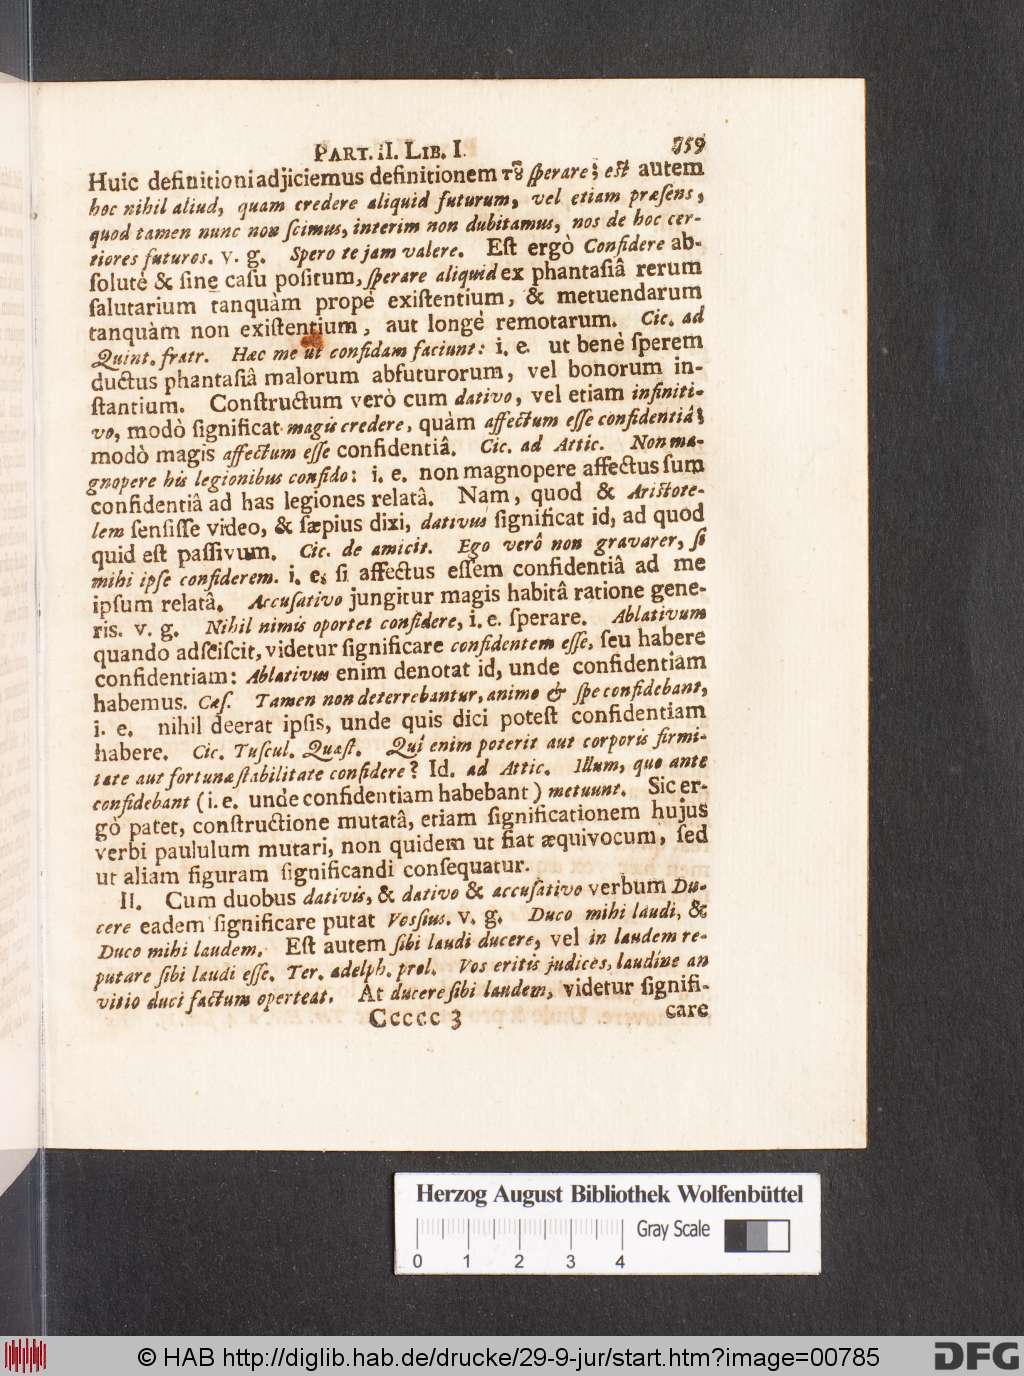 PART. II. LIB. I. 759
Huic definitioni adjiciemus definitionem τȣ͂ ſperare; eſt autem
hoc nihil aliud, quam credere aliquid futurum, vel etiam præſens,
quod tamen nunc non ſcimus, interim non dubitamus, nos de hoc cer-
tiores futuros. v. g. Spero te jam valere. Eſt ergò Confidere ab-
ſolutè & ſine caſu poſitum, ſperare aliquid ex phantaſiâ rerum
ſalutarium tanquàm propè exiſtentium, & metuendarum
tanquàm non exiſtentium, aut longè remotarum. Cic. ad
Quint. fratr. Hæc me ut confidam faciunt: i. e. ut benè ſperem
ductus phantaſiâ malorum abfuturorum, vel bonorum in-
ſtantium. Conſtructum verò cum dativo, vel etiam infiniti-
vo, modò ſignificat magis credere, quàm affectum eſſe confidentiâ;
modò magis affectum eſſe confidentiâ. Cic. ad Attic. Non ma-
gnopere his legionibus confido: i. e. non magnopere affectus ſum
confidentiâ ad has legiones relatâ. Nam, quod & Ariſtote-
lem ſenſiſſe video, & ſæpius dixi, dativus ſignificat id, ad quod
quid eſt paſſivum. Cic. de amicit. Ego verô non gravarer, ſi
mihi ipſe confiderem. i. e. ſi affectus eſſem confidentiâ ad me
ipſum relatâ. Accuſativo jungitur magis habitâ ratione gene-
ris. v. g. Nihil nimis oportet confidere, i. e. ſperare. Ablativum
quando adſciſcit, videtur ſignificare confidentem eſſe, ſeu habere
confidentiam: Ablativus enim denotat id, unde confidentiam
habemus. Cæſ. Tamen non deterrebantur, animo & ſpe confidebant,
i. e. nihil deerat ipſis, unde quis dici poteſt confidentiam
habere. Cic. Tuſcul. Quæſt. Qui enim poterit aut corporis firmi-
tate aut fortunæ ſtabilitate confidere? Id. ad Attic. Illum, quo ante
confidebant (i. e. unde confidentiam habebant) metuunt. Sic er-
gò patet, conſtructione mutatâ, etiam ſignificationem hujus
verbi paululum mutari, non quidem ut fiat æquivocum, ſed
ut aliam figuram ſignificandi conſequatur.
II. Cum duobus dativis, & dativo & accuſativo verbum Du-
cere eadem ſignificare putat Voſſius. v. g. Duco mihi laudi, &
Duco mihi laudem. Eſt autem ſibi laudi ducere, vel in laudem re-
putare ſibi laudi eſſe. Ter. adelph. prol. Vos eritis judices, laudine an
vitio duci factum operteat. At ducere ſibi laudem, videtur ſignifi-
Ccccc 3 care
Herzog August Bibliothek Wolfenbüttel
Gray Scale
0 1 2 3 4
© HAB http://diglib.hab.de/drucke/29-9-jur/start.htm?image=00785
DFG